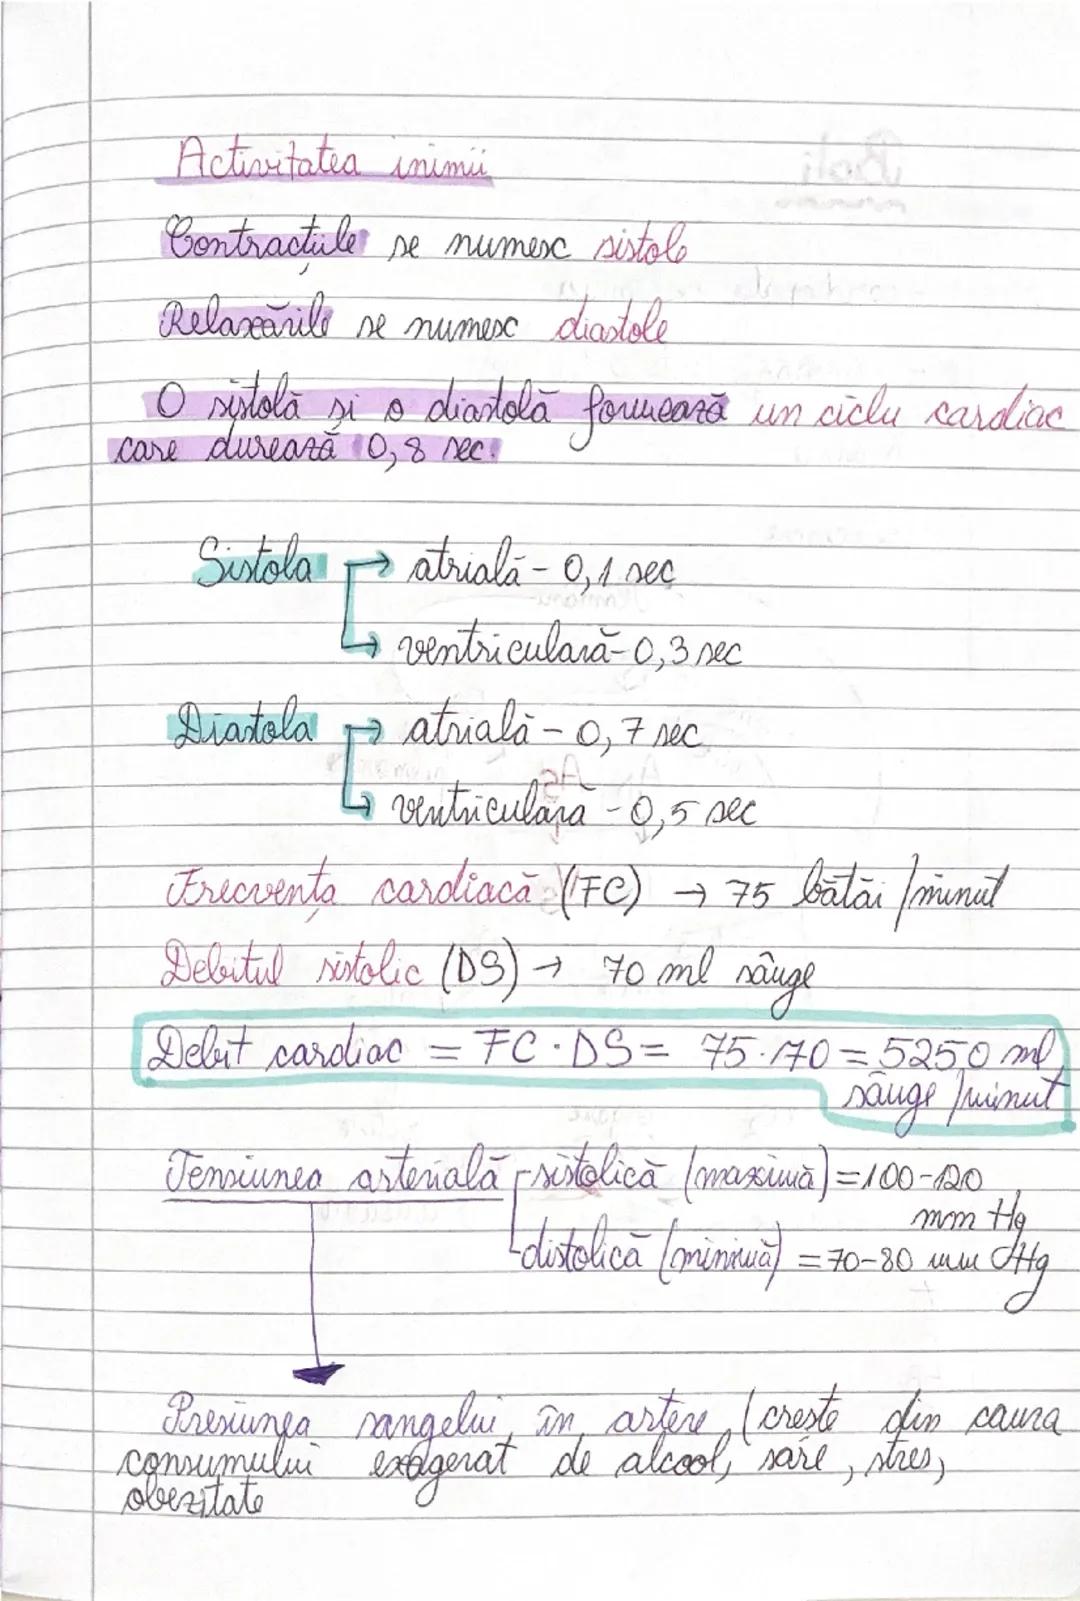 Activitatea inimii
Contracțiile se numesc sistole
Relaxările se numesc diastole
O sistolă si o diastolă formează un ciclu cardiac
care durează 0,8 sec.
Sistola → atrială - 0,1 sec
→ ventriculară - 0,3 sec
Diastola → atrială - 0,7 sec
→ ventriculară - 0,5 sec
Frecvența cardiacă (FC) → 75 bătăi/minut
Debitul sistolic (DS) → 70 ml sânge
Debit cardiac = FC · DS = 75 · 70 = 5250 ml
sânge/minut
Tensiunea arterială sistolică (maximă) = 100-120
mm Hg
distolică (minimă) = 70-80 mm Hg
Presiunea sangelui în artere (creste din cauza
consumului exagerat de alcool, sare, stres,
obezitate